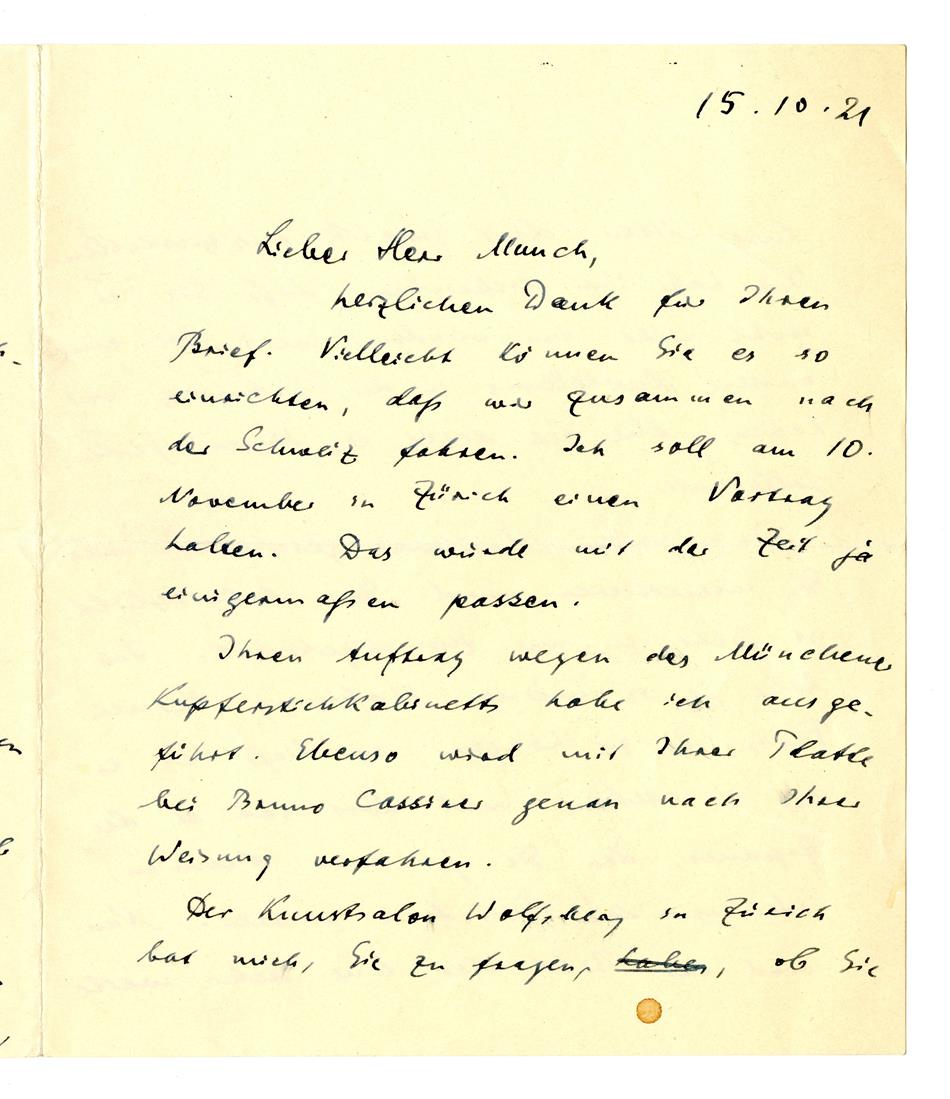 15.10.21
Lieber Herr Munch,
herzlichen Dank für Ihren
Brief. Vielleicht können Sie es so
einrichten, daß wir zusammen nach
der Schweiz fahren. Ich soll am 10.
November in Zürich einen Vortrag
halten. Das würde mit der Zeit ja
einigermaßen passen.
Ihren Auftrag wegen des Münchener
Kupferstichkabinetts habe ich ausge-
führt. Ebenso wird mit Ihrer Platte
bei Bruno Cassirer genau nach Ihrer
Weisung verfahren.
Der Kunstsalon Wolfsberg in Zürich
bat mich, Sie zu fragen, , ob Sie